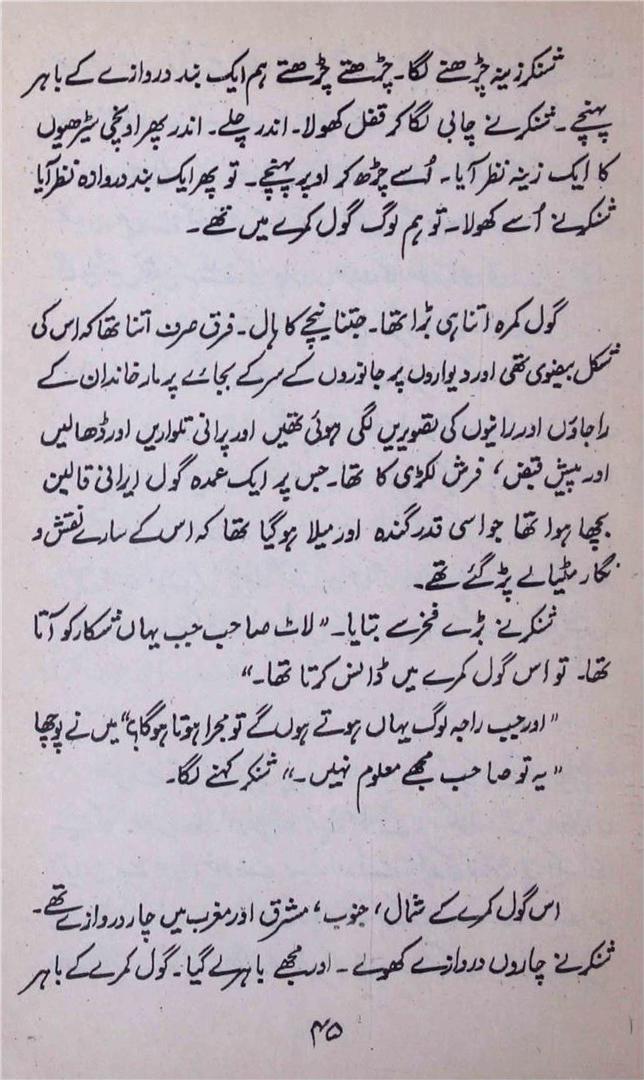 شنکر زینہ چڑھنے لگا۔ چڑھتے چڑھتے ہم ایک بند دروازے کے باہر
پہنچے۔ شنکر نے چابی لگا کر قفل کھولا۔ اندر چلے۔ اندر پھر اونچی سیڑھیوں
کا ایک زینہ نظر آیا۔ اُسے چڑھ کر اوپر پہنچے۔ تو پھر ایک بند دروازہ نظر آیا
شنکر نے اُسے کھولا۔ تو ہم لوگ گول کمرے میں تھے۔
گول کمرہ اتنا ہی بڑا تھا۔ جتنا نیچے کا ہال۔ فرق صرف اتنا تھا کہ اس کی
شکل بیضوی تھی اور دیواروں پر جانوروں کے سر کے بجائے پرمار خاندان کے
راجاؤں اور رانیوں کی تصویریں لگی ہوئی تھیں اور پرانی تلواریں اور ڈھالیں
اور پیش قبض، فرش لکڑی کا تھا۔ جس پر ایک عمدہ گول ایرانی قالین
بچھا ہوا تھا جو اسی قدر گندہ اور میلا ہو گیا تھا کہ اس کے سارے نقش و
نگار مٹیالے پڑ گئے تھے۔
شنکر نے بڑے فخر سے بتایا۔ "لاٹ صاحب جب یہاں شکار کو آتا
تھا۔ تو اس گول کمرے میں ڈانس کرتا تھا۔"
"اور جب راجہ لوگ یہاں ہوتے ہوں گے تو مجرا ہوتا ہوگا؟" میں نے پوچھا
"یہ تو صاحب مجھے معلوم نہیں۔" شنکر کہنے لگا۔
اس گول کمرے کے شمال، جنوب، مشرق اور مغرب میں چار دروازے تھے۔
شنکر نے چاروں دروازے کھولے۔ اور مجھے باہر لے گیا۔ گول کمرے کے باہر
۴۵